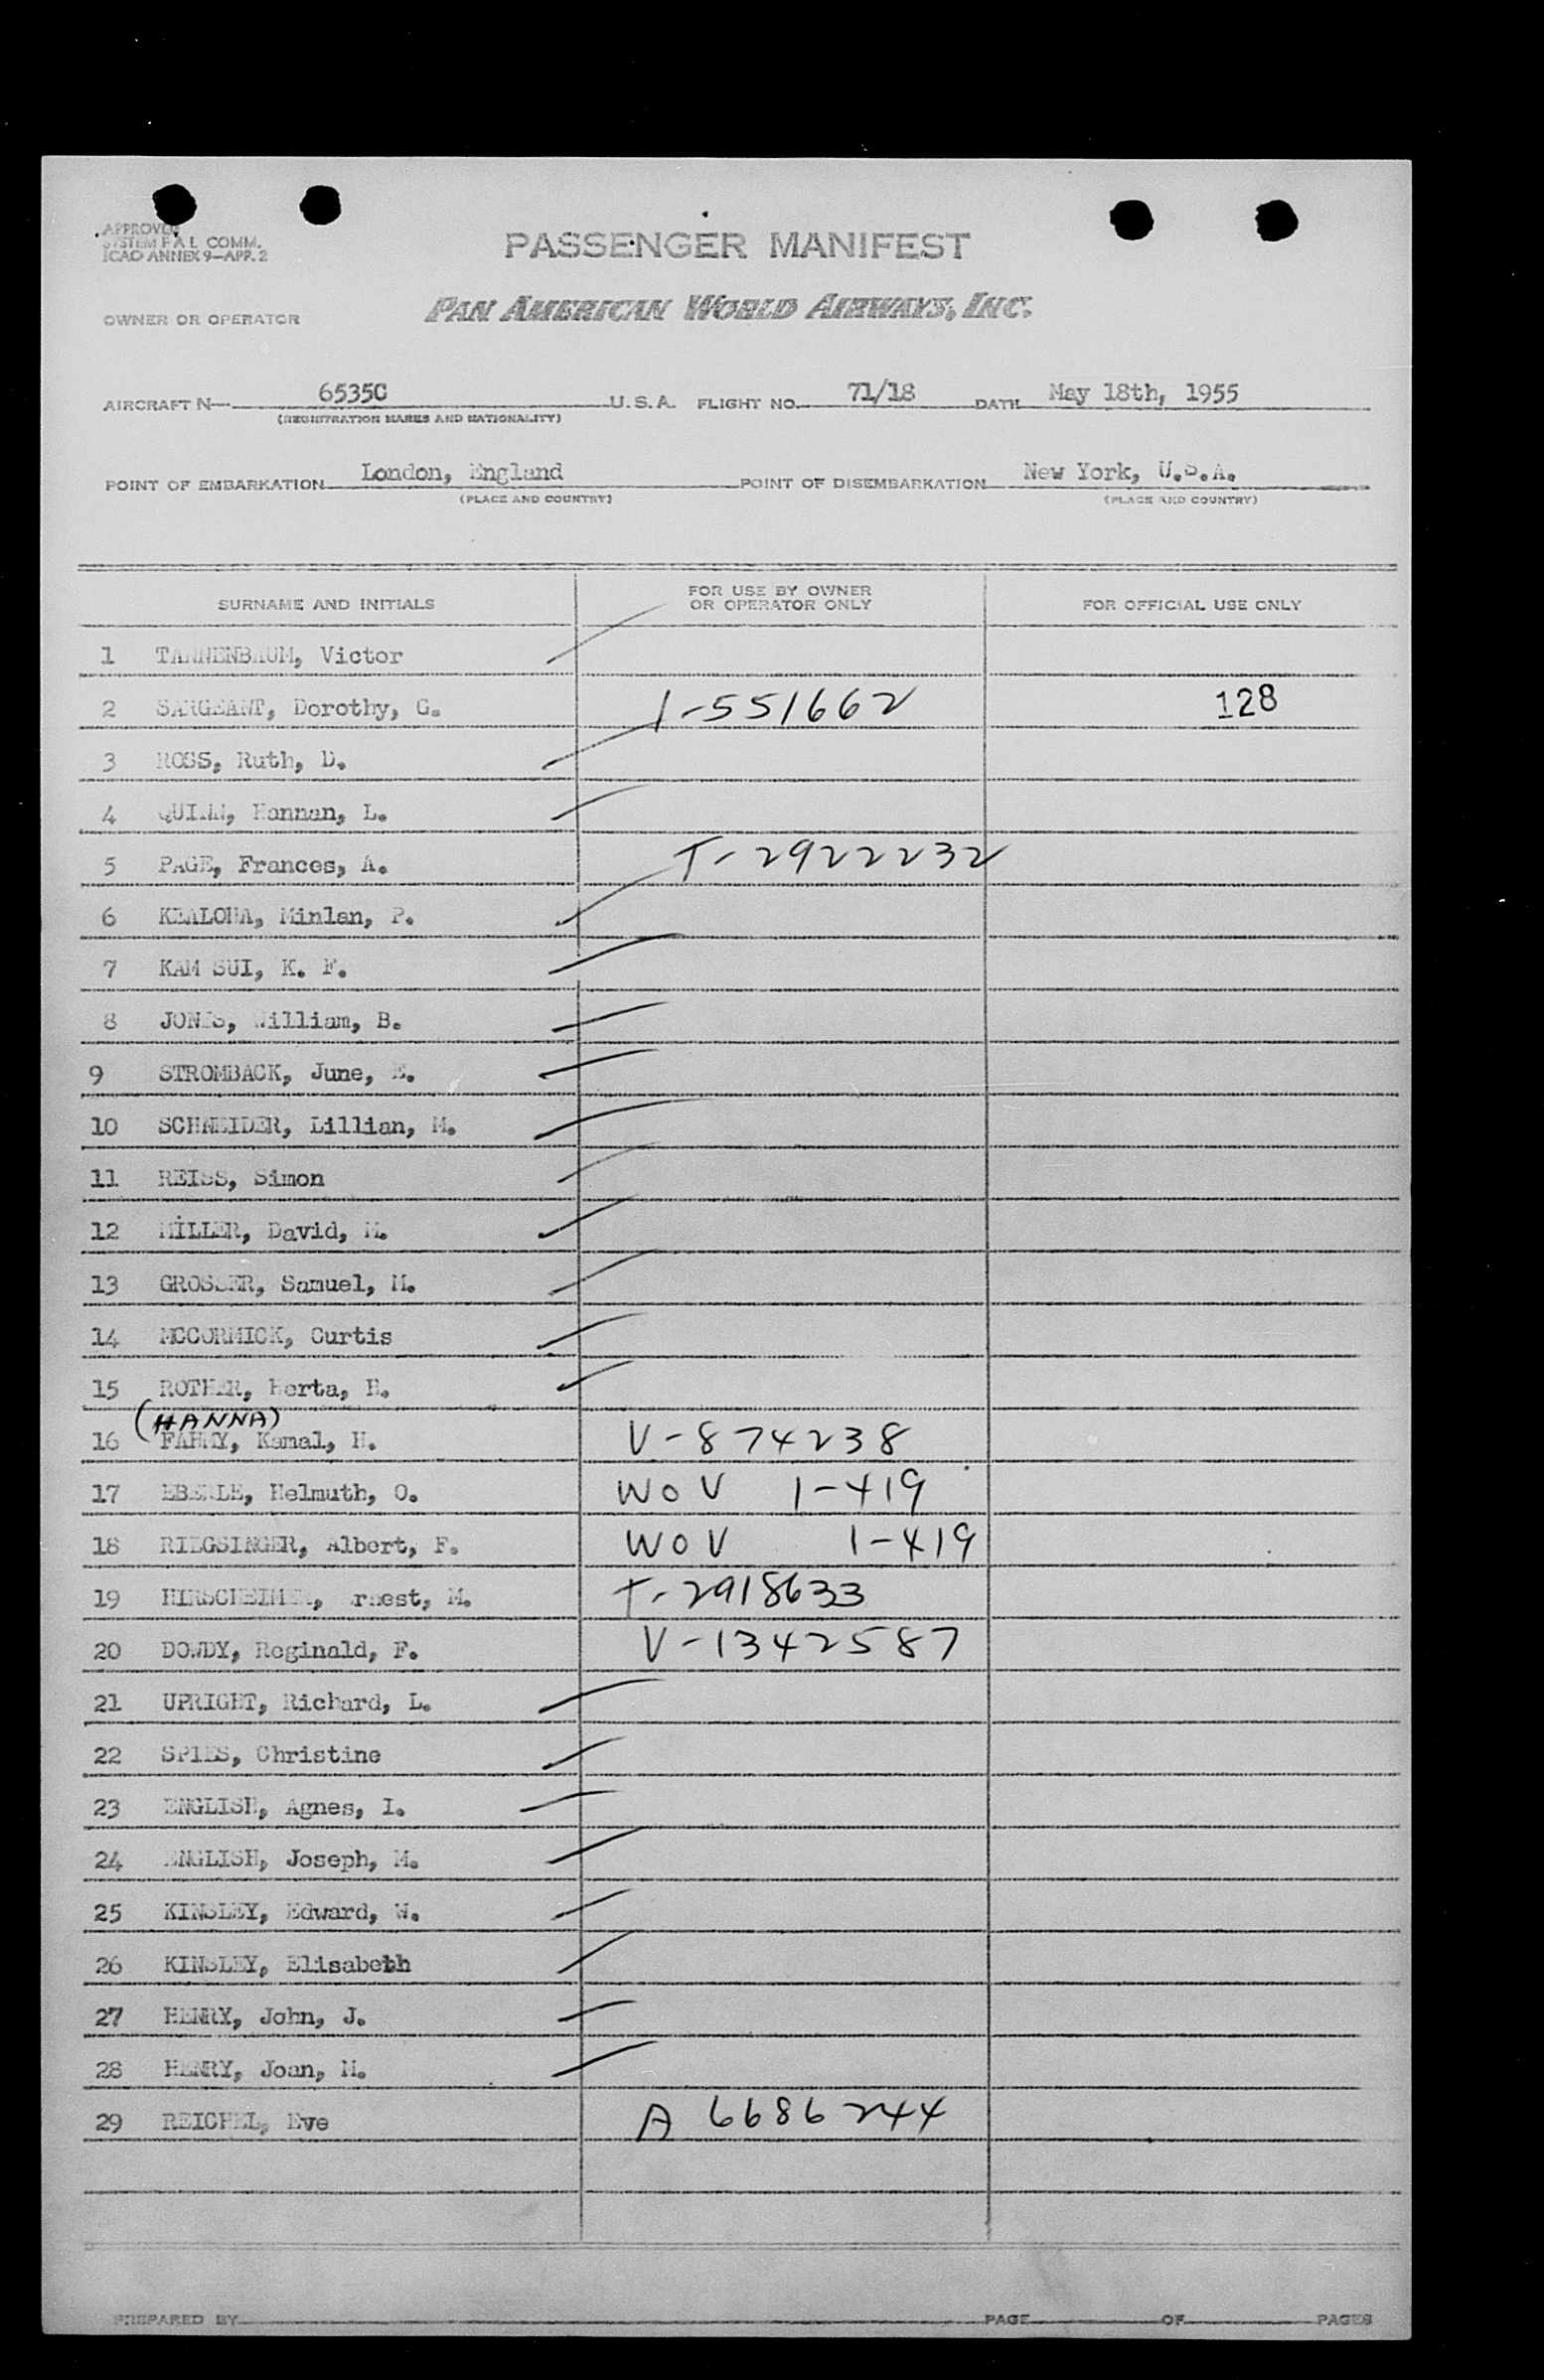 APPROVED
SYSTEM P A L COMM.
ICAO ANNEX 9-APP. 2
PASSENGER MANIFEST
OWNER OR OPERATOR PAN AMERICAN WORLD AIRWAYS, INC.
AIRCRAFT N- 6535C U.S.A. FLIGHT NO. 71/18 DATE May 18th, 1955
(REGISTRATION MARKS AND NATIONALITY)
POINT OF EMBARKATION London, England POINT OF DISEMBARKATION New York, U.S.A.
(PLACE AND COUNTRY) (PLACE AND COUNTRY)
SURNAME AND INITIALS FOR USE BY OWNER OR OPERATOR ONLY FOR OFFICIAL USE ONLY
1 TANNENBAUM, Victor
2 SARGEANT, Dorothy, G. 1-551662 128
3 ROSS, Ruth, D.
4 QUINN, Hannan, L.
5 PAGE, Frances, A. T-2922232
6 KEALOHA, Minlan, P.
7 KAM SUI, K. F.
8 JONES, William, B.
9 STROMBACK, June, E.
10 SCHNEIDER, Lillian, M.
11 REISS, Simon
12 MILLER, David, M.
13 GROSSER, Samuel, M.
14 MCCORMICK, Curtis
15 ROTHER, Herta, H.
(HANNA)
16 FAHMY, Kamal, H. V-874238
17 EBERLE, Helmuth, O. WOV 1-419
18 RIEGSINGER, Albert, F. WOV 1-419
19 HIRSCHEIMER, Ernest, M. T-2918633
20 DOWDY, Reginald, F. V-1342587
21 UPRIGHT, Richard, L.
22 SPIES, Christine
23 ENGLISH, Agnes, I.
24 ENGLISH, Joseph, M.
25 KINSLEY, Edward, W.
26 KINSLEY, Elisabeth
27 HENRY, John, J.
28 HENRY, Joan, M.
29 REICHEL, Eve A 6686244
PREPARED BY PAGE OF PAGES